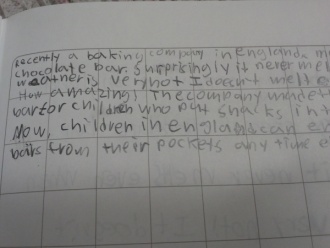 Recently a baking company in England m
chocolate bar. Surprisingly it never mel
weather is very hot I doesn't melt e
How amazing! The company made t
bar for children who put snacks in t
Now, children in england can e
bars from their pockets any time e